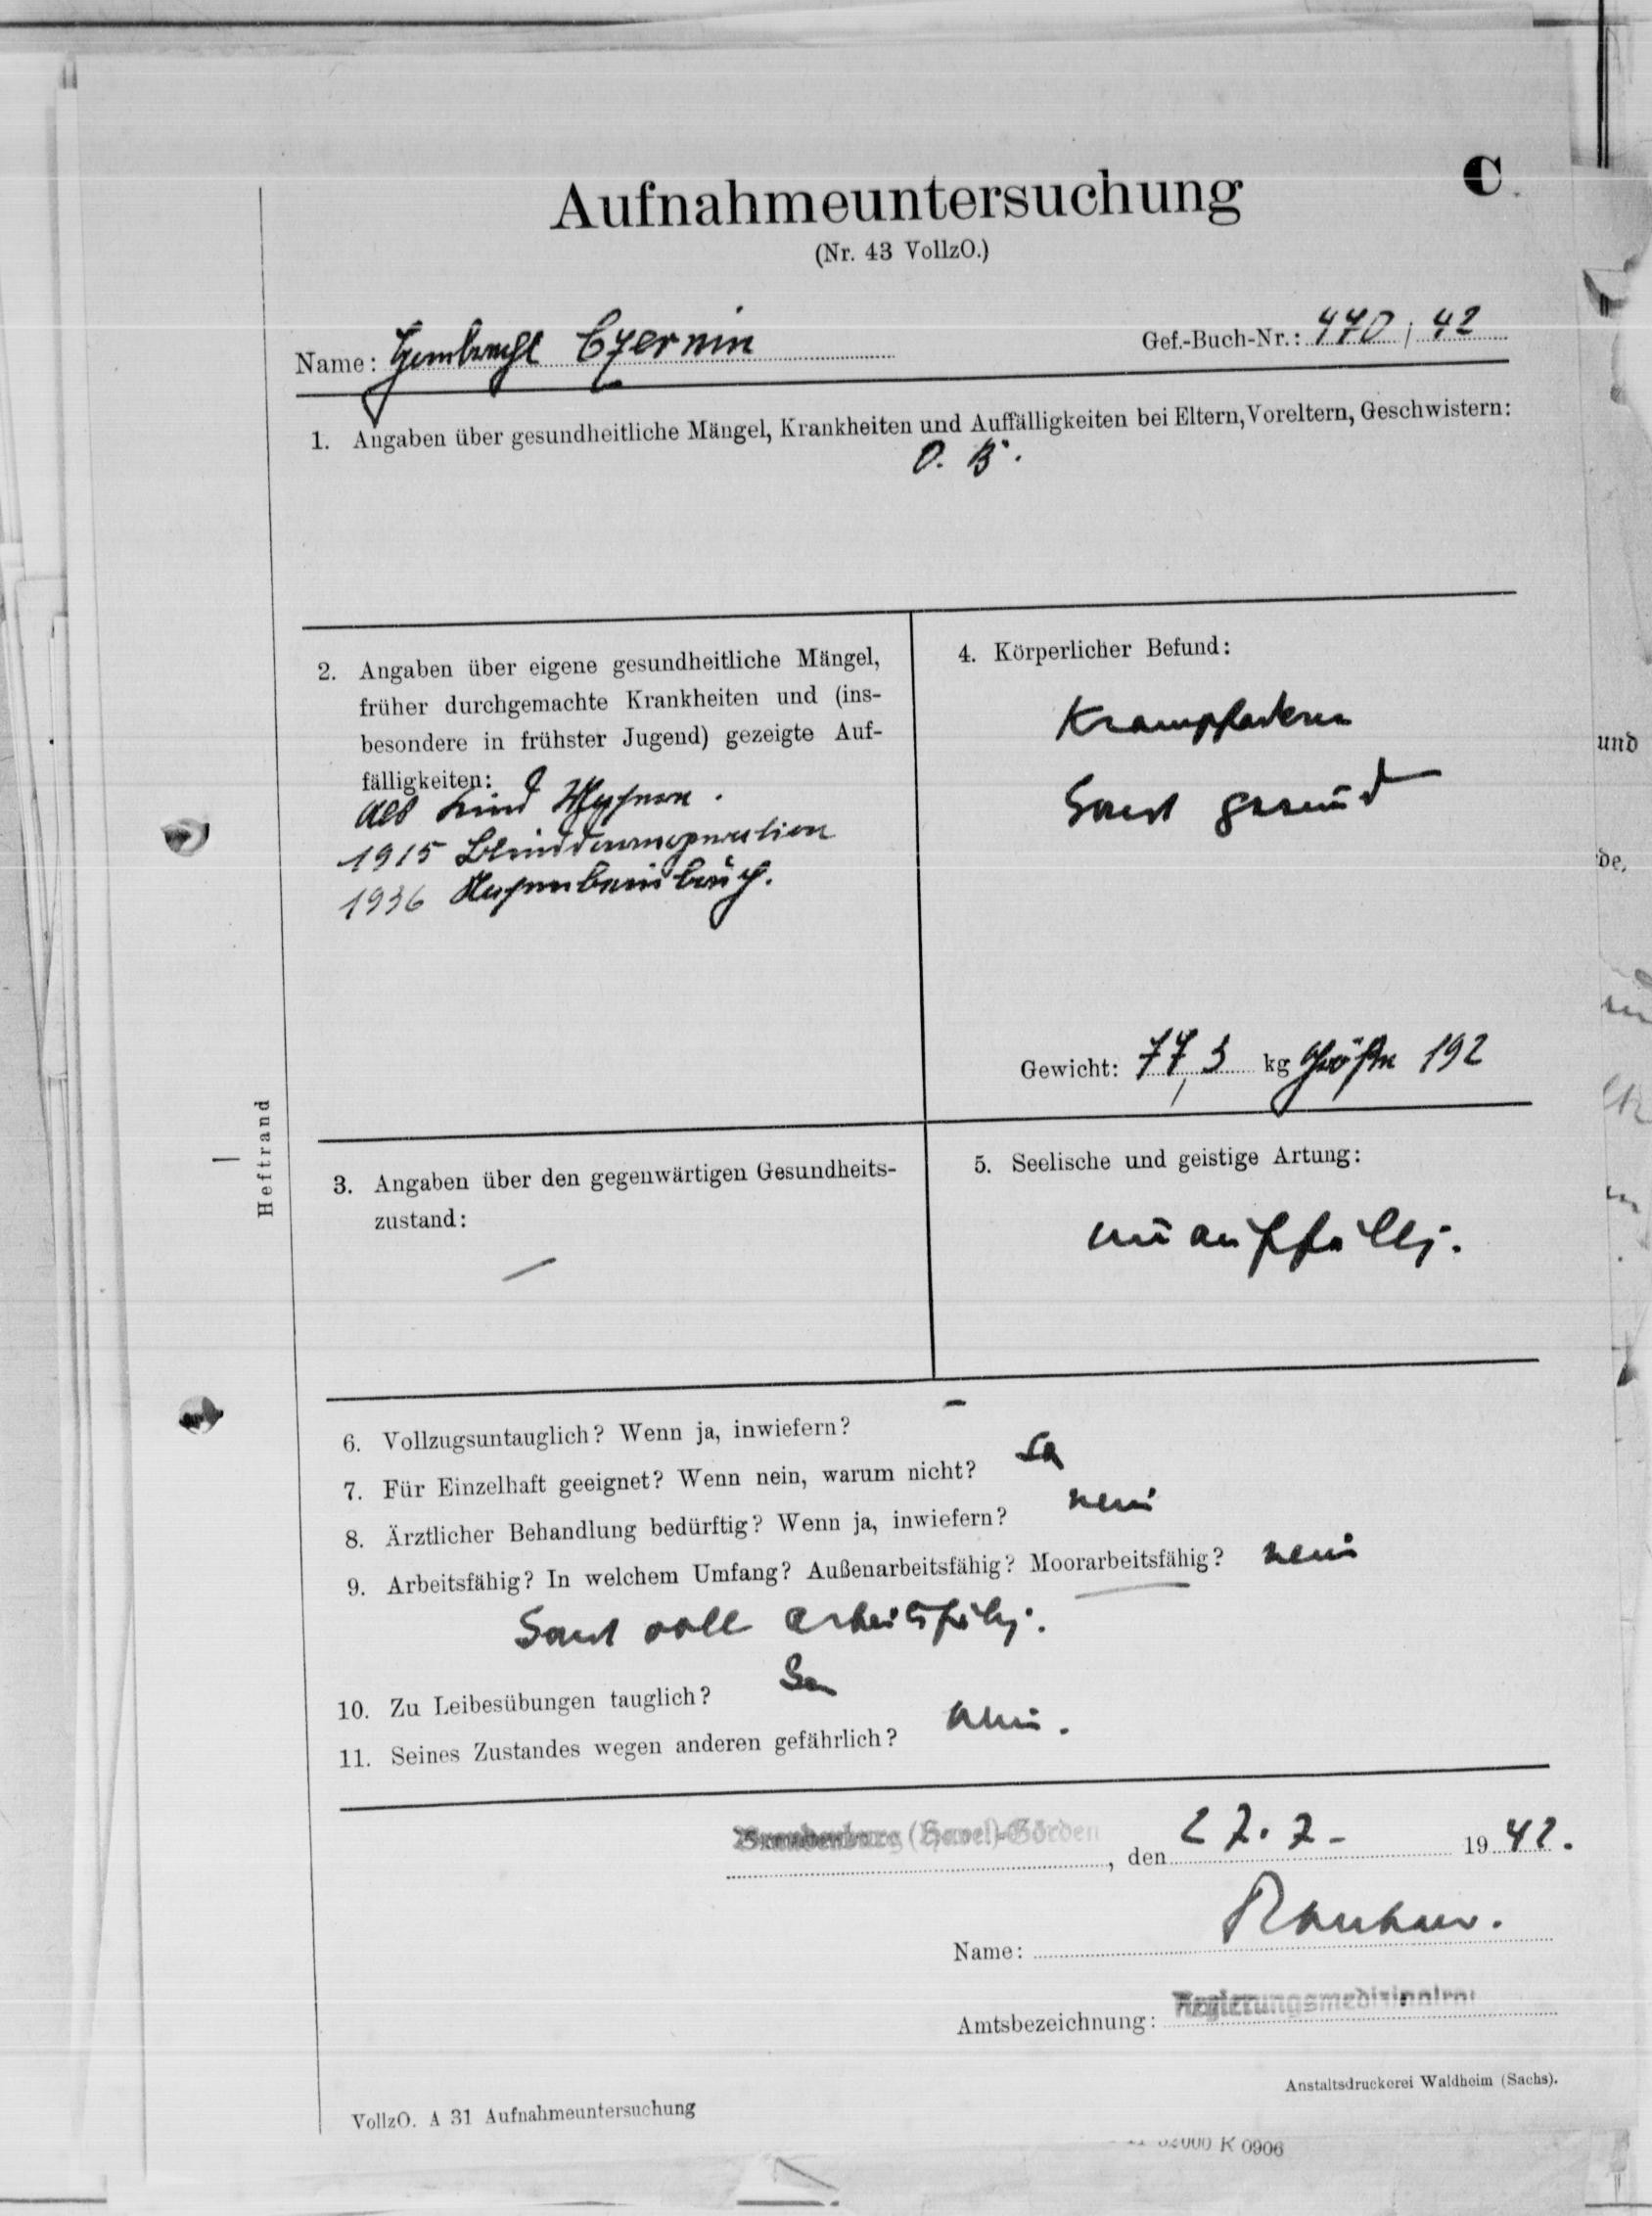 C
Aufnahmeuntersuchung
(Nr. 43 VollzO.)
Name: Humbrecht Czernin Gef.-Buch-Nr.: 470 / 42
1. Angaben über gesundheitliche Mängel, Krankheiten und Auffälligkeiten bei Eltern, Voreltern, Geschwistern:
O. B.
2. Angaben über eigene gesundheitliche Mängel,
früher durchgemachte Krankheiten und (ins-
besondere in frühster Jugend) gezeigte Auf-
fälligkeiten:
als Kind Masern.
1915 Blinddarmoperation
1936 Nasenbeinbruch.
4. Körperlicher Befund:
Krampfadern
Sonst gesund
Gewicht: 77,3 kg Größe 192
3. Angaben über den gegenwärtigen Gesundheits-
zustand:
—
5. Seelische und geistige Artung:
unauffällig.
6. Vollzugsuntauglich? Wenn ja, inwiefern? –
7. Für Einzelhaft geeignet? Wenn nein, warum nicht? Ja
8. Ärztlicher Behandlung bedürftig? Wenn ja, inwiefern? nein
9. Arbeitsfähig? In welchem Umfang? Außenarbeitsfähig? Moorarbeitsfähig? nein
Sonst voll arbeitsfähig.
10. Zu Leibesübungen tauglich? Ja
11. Seines Zustandes wegen anderen gefährlich? nein.
Brandenburg (Havel)-Görden, den 27. 7. 1942.
Name:
Amtsbezeichnung: Regierungsmedizinalrat
Anstaltsdruckerei Waldheim (Sachs).
VollzO. A 31 Aufnahmeuntersuchung
K 0906
Heftrand
und
de.